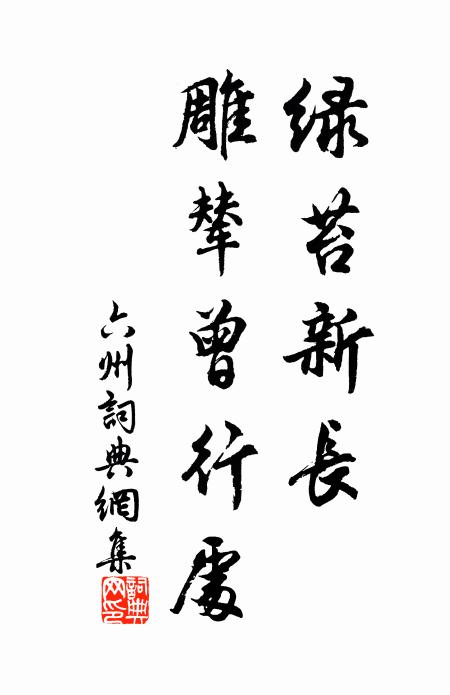 绿苔新長
雕輦曾行處
六州詞典網集
詞典
网印